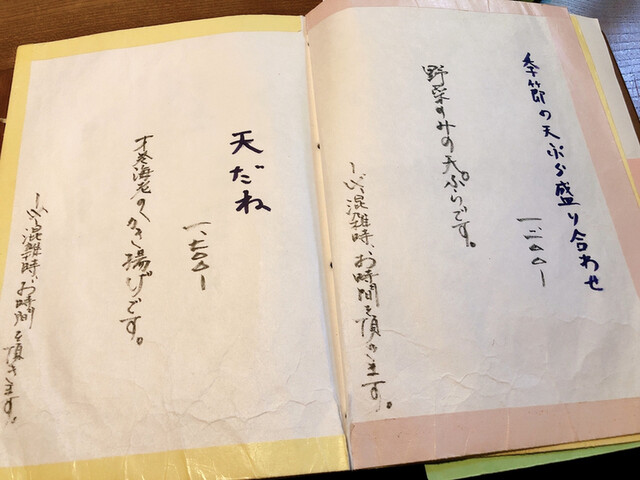 季節の天ぷら盛り合わせ
一、二〇〇ー
野菜のみの天ぷらです。
混雑時、お時間を頂きます。
天だね
一、七〇〇ー
才巻海老のかき揚げです。
混雑時、お時間を頂きます。